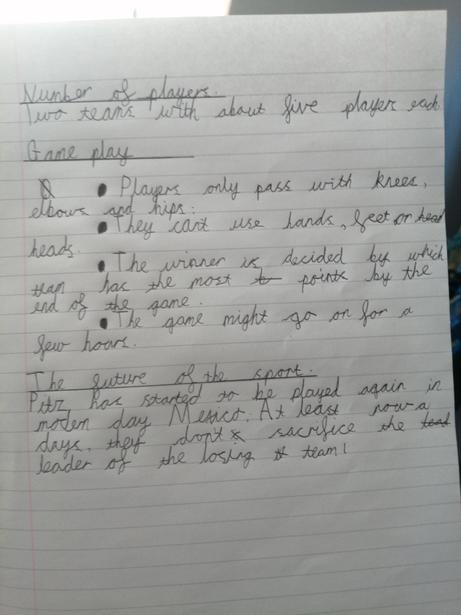 Number of players.
Two teams with about five player each.
Game play
• Players only pass with knees,
elbows and hips.
• They can't use hands, feet or head
heads.
• The winner is decided by which
team has the most points by the
end of the game.
• The game might go on for a
few hours.
The future of the sport.
Pitz has started to be played again in
moden day Mexico. At least now a
days, they don't sacrifice the lead
leader of the losing team!